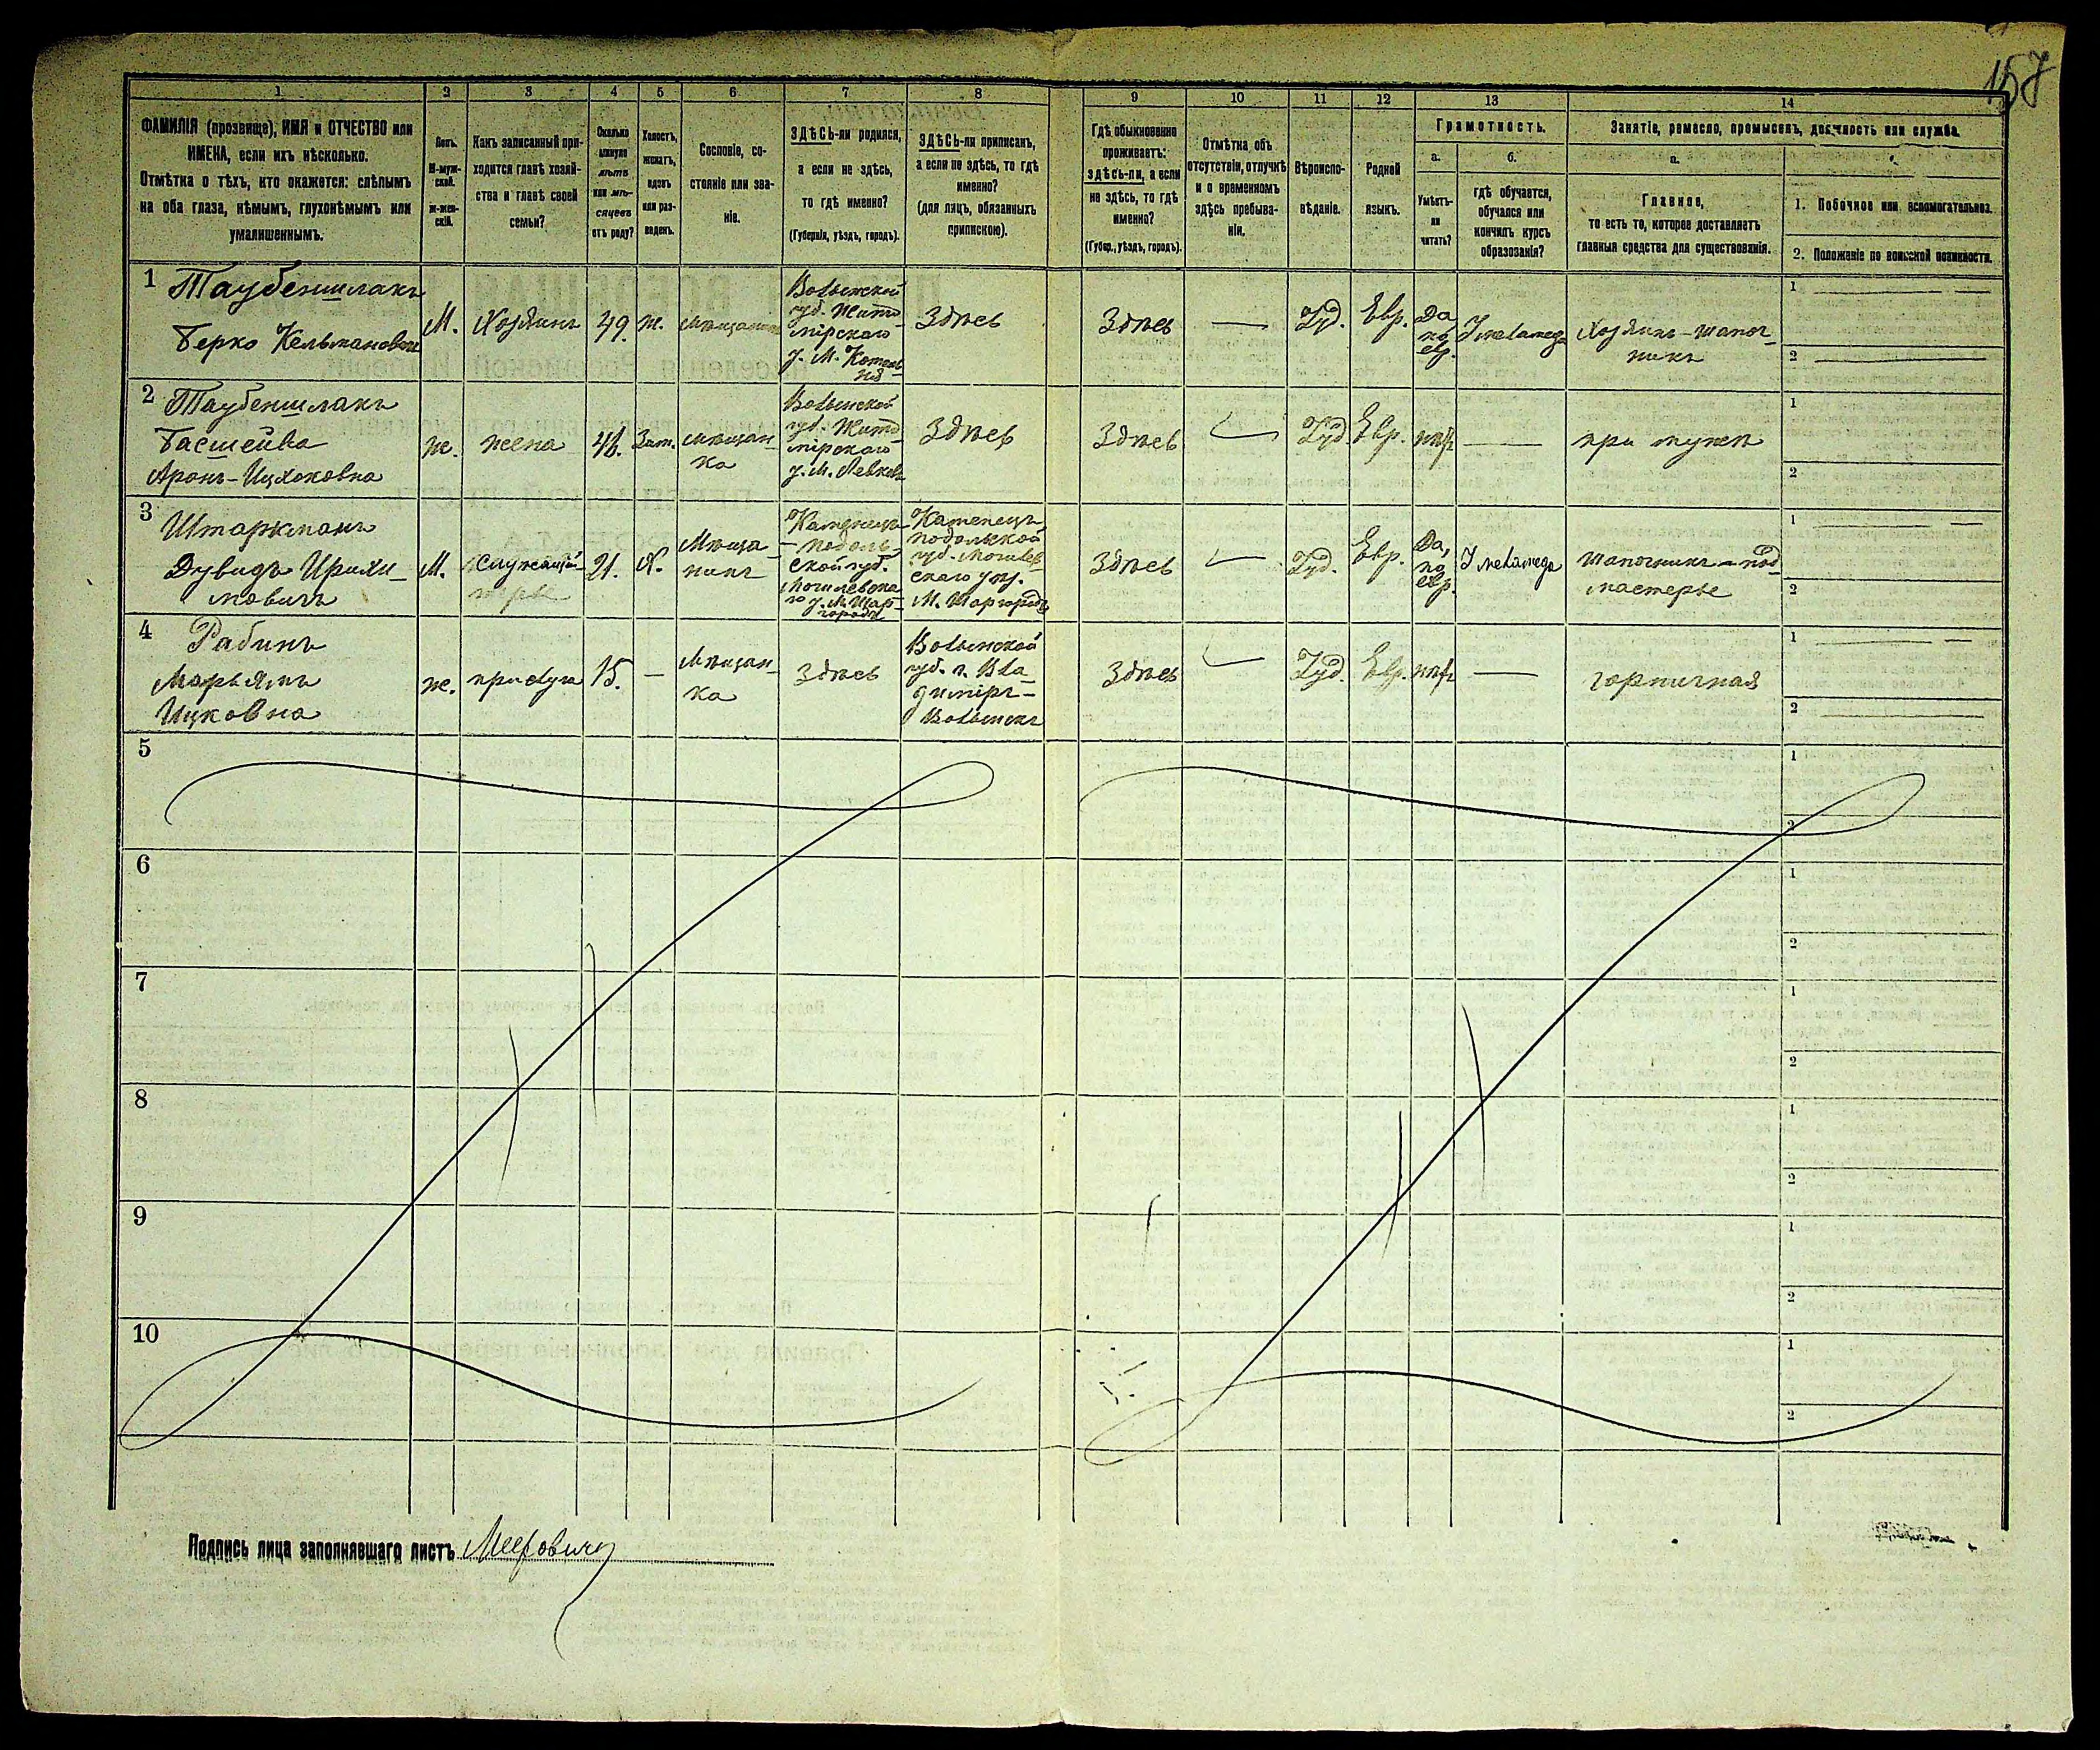 157
1 2 3 4 5 6 7 8 9 10 11 12 13 14
ФАМИЛІЯ (прозвище), ИМЯ и ОТЧЕСТВО или
ИМЕНА, если ихъ нѣсколько.
Отмѣтка о тѣхъ, кто окажется: слѣпымъ
на оба глаза, нѣмымъ, глухонѣмымъ или
умалишеннымъ.
Полъ.
М-муж-
ской.
ж-жен-
скій.
Какъ записанный при-
ходится главѣ хозяй-
ства и главѣ своей
семьи?
Сколько
минуло
лѣтъ
или мѣ-
сяцевъ
отъ роду?
Холостъ,
женатъ,
вдовъ
или раз-
веденъ.
Сословіе, со-
стояніе или зва-
ніе.
ЗДѢСЬ-ли родился,
а если не здѣсь,
то гдѣ именно?
(Губернія, уѣздъ, городъ).
ЗДѢСЬ-ли приписанъ,
а если не здѣсь, то гдѣ
именно?
(для лицъ, обязанныхъ
припискою).
Гдѣ обыкновенно
проживаетъ:
здѣсь-ли, а если
не здѣсь, то гдѣ
именно?
(Губер., уѣздъ, городъ).
Отмѣтка объ
отсутствіи, отлучкѣ
и о временномъ
здѣсь пребыва-
ніи.
Вѣроиспо-
вѣданіе.
Родной
языкъ.
Грамотность.
а.
Умѣетъ-
ли
читать?
б.
гдѣ обучается,
обучался или
кончилъ курсъ
образованія?
Занятіе, ремесло, промыселъ, должность или служба.
а.
Главное,
то есть то, которое доставляетъ
главныя средства для существованія.
1. Побочное или вспомогательное.
2. Положеніе по воинской повинности.
1 Таубеншлакъ
Берко Кельмановичъ
М.
Хозяинъ
49.
ж.
мѣщанинъ
Волынской
губ. Жито-
мірскаго
у. М. Котель-
ня
Здѣсь
Здѣсь
—
Іуд.
Евр.
Да
по
евр.
У меламеда
Хозяинъ-шапоч-
никъ
1
2
2 Таубеншлакъ
Басшейва
Аронъ-Ицхоковна
ж.
жена
Зам.
мѣщан-
ка
Волынской
губ. Жито-
мірскаго
у. М. Левковъ
Здѣсь
Здѣсь
Іуд.
Евр.
нѣтъ
—
при мужѣ
1
2
3 Штаркманъ
Дувидъ
М.
служащій
21.
Х.
Мѣща-
нинъ
Каменецъ-
Подоль-
ской губ.
Могилевска-
го у. М. Шар-
городъ
Каменецъ-
подольской
губ. Могилев-
скаго уѣз.
М. Шаргородъ
Здѣсь
Іуд.
Евр.
Да,
по
евр.
У меламеда
шапочникъ-под-
мастерье
1
2
4 Рабинъ
Марьямъ
Ицковна
ж.
прислуга
15.
—
Мѣщан-
ка
Здѣсь
Волынской
губ. г. Вла-
диміръ-
Волынскъ
Здѣсь
Іуд.
Евр.
нѣтъ
—
горничная
1
2
5
1
2
6
1
2
7
1
2
8
1
2
9
1
2
10
1
2
Подпись лица заполнявшаго листъ Меерович